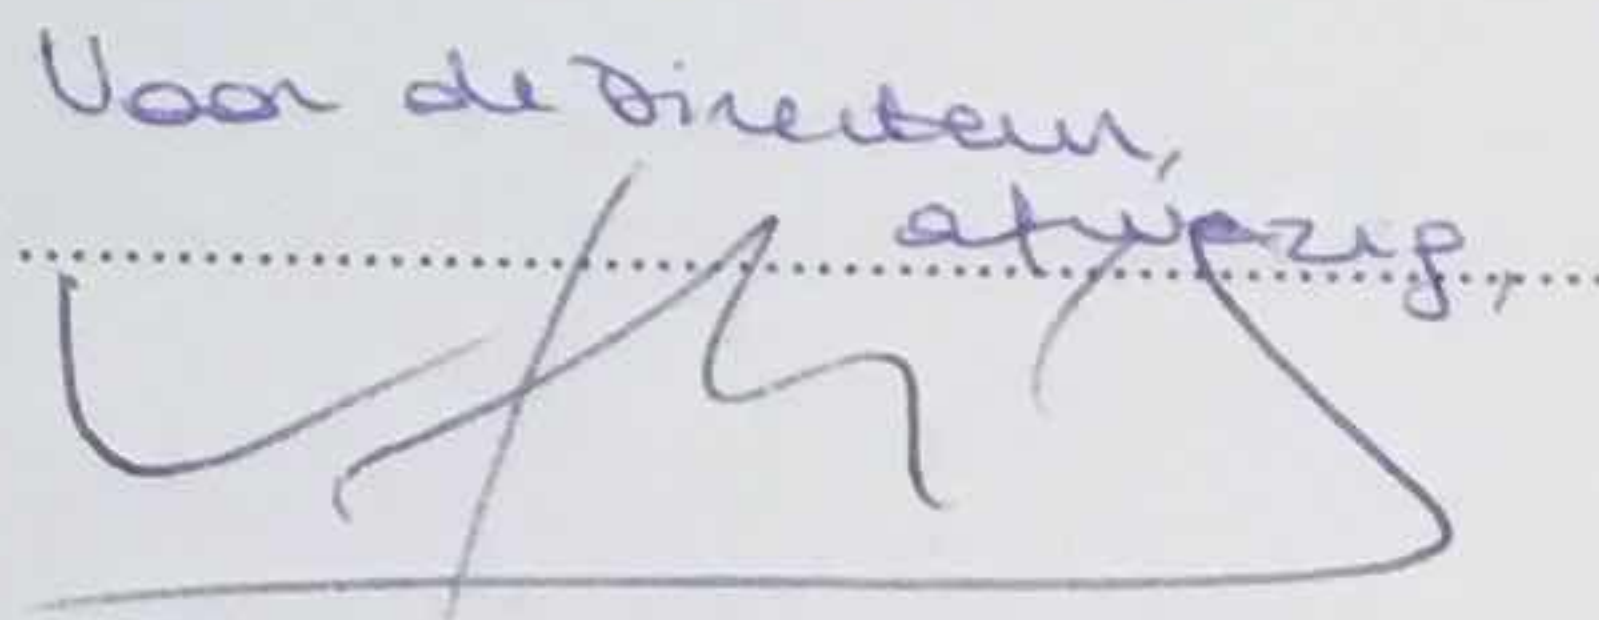 Voor de Directeur,
afwezig,